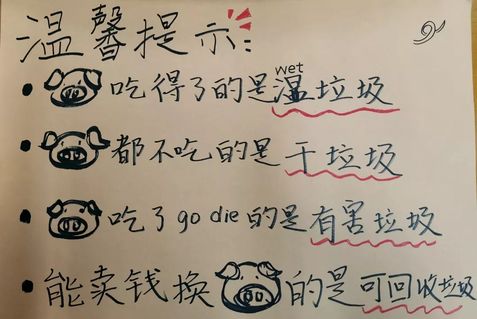 温馨提示:
wet
吃得了的是湿垃圾
都不吃的是干垃圾
吃了go die的是有害垃圾
能卖钱换的是可回收垃圾